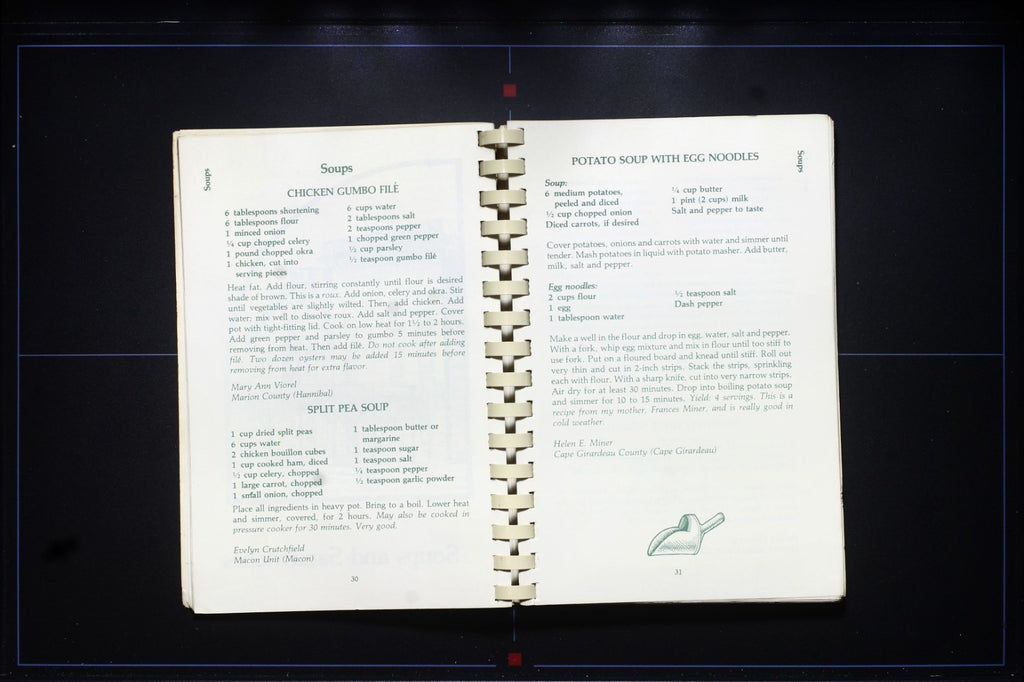 Soups
Soups
CHICKEN GUMBO FILÈ
6 tablespoons shortening
6 tablespoons flour
1 minced onion
¼ cup chopped celery
1 pound chopped okra
1 chicken, cut into
serving pieces
6 cups water
2 tablespoons salt
2 teaspoons pepper
1 chopped green pepper
½ cup parsley
½ teaspoon gumbo filé
Heat fat. Add flour, stirring constantly until flour is desired
shade of brown. This is a roux. Add onion, celery and okra. Stir
until vegetables are slightly wilted. Then, add chicken. Add
water; mix well to dissolve roux. Add salt and pepper. Cover
pot with tight-fitting lid. Cook on low heat for 1½ to 2 hours.
Add green pepper and parsley to gumbo 5 minutes before
removing from heat. Then add filé. Do not cook after adding
filé. Two dozen oysters may be added 15 minutes before
removing from heat for extra flavor.
Mary Ann Viorel
Marion County (Hannibal)
SPLIT PEA SOUP
1 cup dried split peas
6 cups water
2 chicken bouillon cubes
1 cup cooked ham, diced
½ cup celery, chopped
1 large carrot, chopped
1 small onion, chopped
1 tablespoon butter or
margarine
1 teaspoon sugar
1 teaspoon salt
¼ teaspoon pepper
½ teaspoon garlic powder
Place all ingredients in heavy pot. Bring to a boil. Lower heat
and simmer, covered, for 2 hours. May also be cooked in
pressure cooker for 30 minutes. Very good.
Evelyn Crutchfield
Macon Unit (Macon)
30
Soups
POTATO SOUP WITH EGG NOODLES
Soup:
6 medium potatoes,
peeled and diced
½ cup chopped onion
Diced carrots, if desired
¼ cup butter
1 pint (2 cups) milk
Salt and pepper to taste
Cover potatoes, onions and carrots with water and simmer until
tender. Mash potatoes in liquid with potato masher. Add butter,
milk, salt and pepper.
Egg noodles:
2 cups flour
1 egg
1 tablespoon water
½ teaspoon salt
Dash pepper
Make a well in the flour and drop in egg, water, salt and pepper.
With a fork, whip egg mixture and mix in flour until too stiff to
use fork. Put on a floured board and knead until stiff. Roll out
very thin and cut in 2-inch strips. Stack the strips, sprinkling
each with flour. With a sharp knife, cut into very narrow strips.
Air dry for at least 30 minutes. Drop into boiling potato soup
and simmer for 10 to 15 minutes. Yield: 4 servings. This is a
recipe from my mother, Frances Miner, and is really good in
cold weather.
Helen E. Miner
Cape Girardeau County (Cape Girardeau)
31